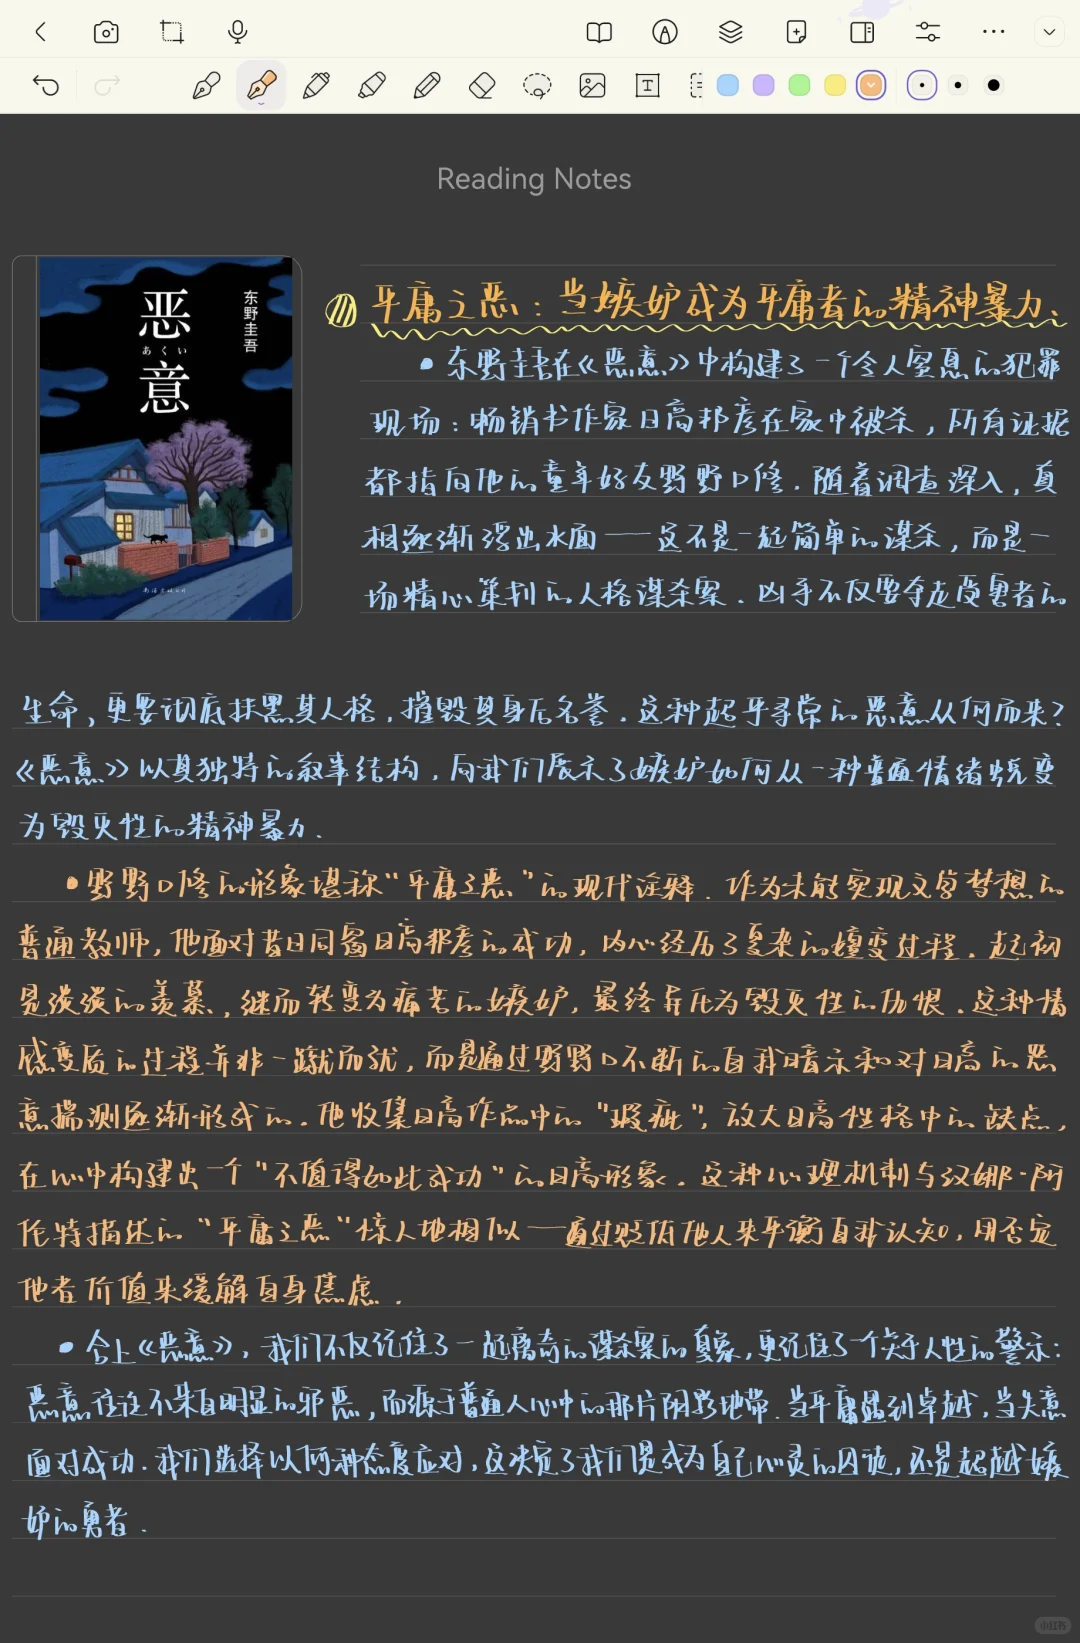 Reading Notes
恶意
あくい
东野圭吾
南海出版公司
平庸之恶：当嫉妒成为平庸者的精神暴力、
• 东野圭吾在《恶意》中构建了一个令人窒息的犯罪
现场：畅销书作家日高邦彦在家中被杀，所有证据
都指向他的童年好友野野口修．随着调查深入，真
相逐渐浮出水面——这不是一起简单的谋杀，而是一
场精心策划的人格谋杀案．凶手不仅要夺走受害者的
生命，更要彻底抹黑其人格，摧毁其身后名誉．这种超乎寻常的恶意从何而来？
《恶意》以其独特的叙事结构，向我们展示了嫉妒如何从一种普通情绪蜕变
为毁灭性的精神暴力．
• 野野口修的形象堪称“平庸之恶”的现代诠释．作为未能实现文学梦想的
普通教师，他面对昔日同窗日高邦彦的成功，内心经历了复杂的嬗变过程．起初
是淡淡的羡慕，继而转变为痛苦的嫉妒，最终异化为毁灭性的仇恨．这种情
感变质的过程并非一蹴而就，而是通过野野口不断的自我暗示和对日高的恶
意揣测逐渐形成的．他收集日高作品中的“瑕疵”，放大日高性格中的缺点，
在心中构建出一个“不值得如此成功”的日高形象．这种心理机制与汉娜·阿
伦特描述的“平庸之恶”惊人地相似——通过贬低他人来平衡自我认知，用否定
他者价值来缓解自身焦虑．
• 合上《恶意》，我们不仅记住了一起离奇的谋杀案的真象，更记住了一个关于人性的警示：
恶意往往不来自明显的邪恶，而源于普通人心中的那片阴影地带．当平庸遇到卓越，当失意
面对成功．我们选择以何种态度应对，这决定了我们是成为自己心灵的囚徒，还是超越嫉
妒的勇者．
小红书